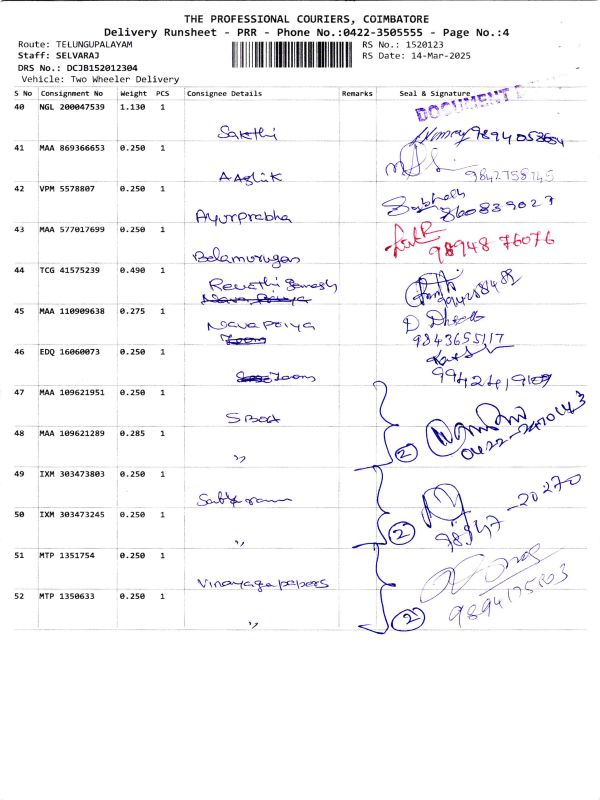 THE PROFESSIONAL COURIERS, COIMBATORE
Delivery Runsheet - PRR - Phone No.:0422-3505555 - Page No.:4
Route: TELUNGUPALAYAM
RS No.: 1520123
Staff: SELVARAJ
RS Date: 14-Mar-2025
DRS No.: DCJB152012304
Vehicle: Two Wheeler Delivery
S No Consignment No Weight PCS Consignee Details Remarks Seal & Signature
DOCUMENT
40 NGL 200047539 1.130 1
Sakthi
41 MAA 869366653 0.250 1
9842758745
42 VPM 5578807 0.250 1
860839027
Ayurprabha
43 MAA 577017699 0.250 1
98948 76076
Balamurugan
44 TCG 41575239 0.490 1
Revathi Ganesh
45 MAA 110909638 0.275 1
Navapoiya
9843655117
46 EDQ 16060073 0.250 1
47 MAA 109621951 0.250 1
48 MAA 109621289 0.285 1
" 2
49 IXM 303473803 0.250 1
50 IXM 303473245 0.250 1
" 2
51 MTP 1351754 0.250 1
Vinayaga papers
52 MTP 1350633 0.250 1
" 2